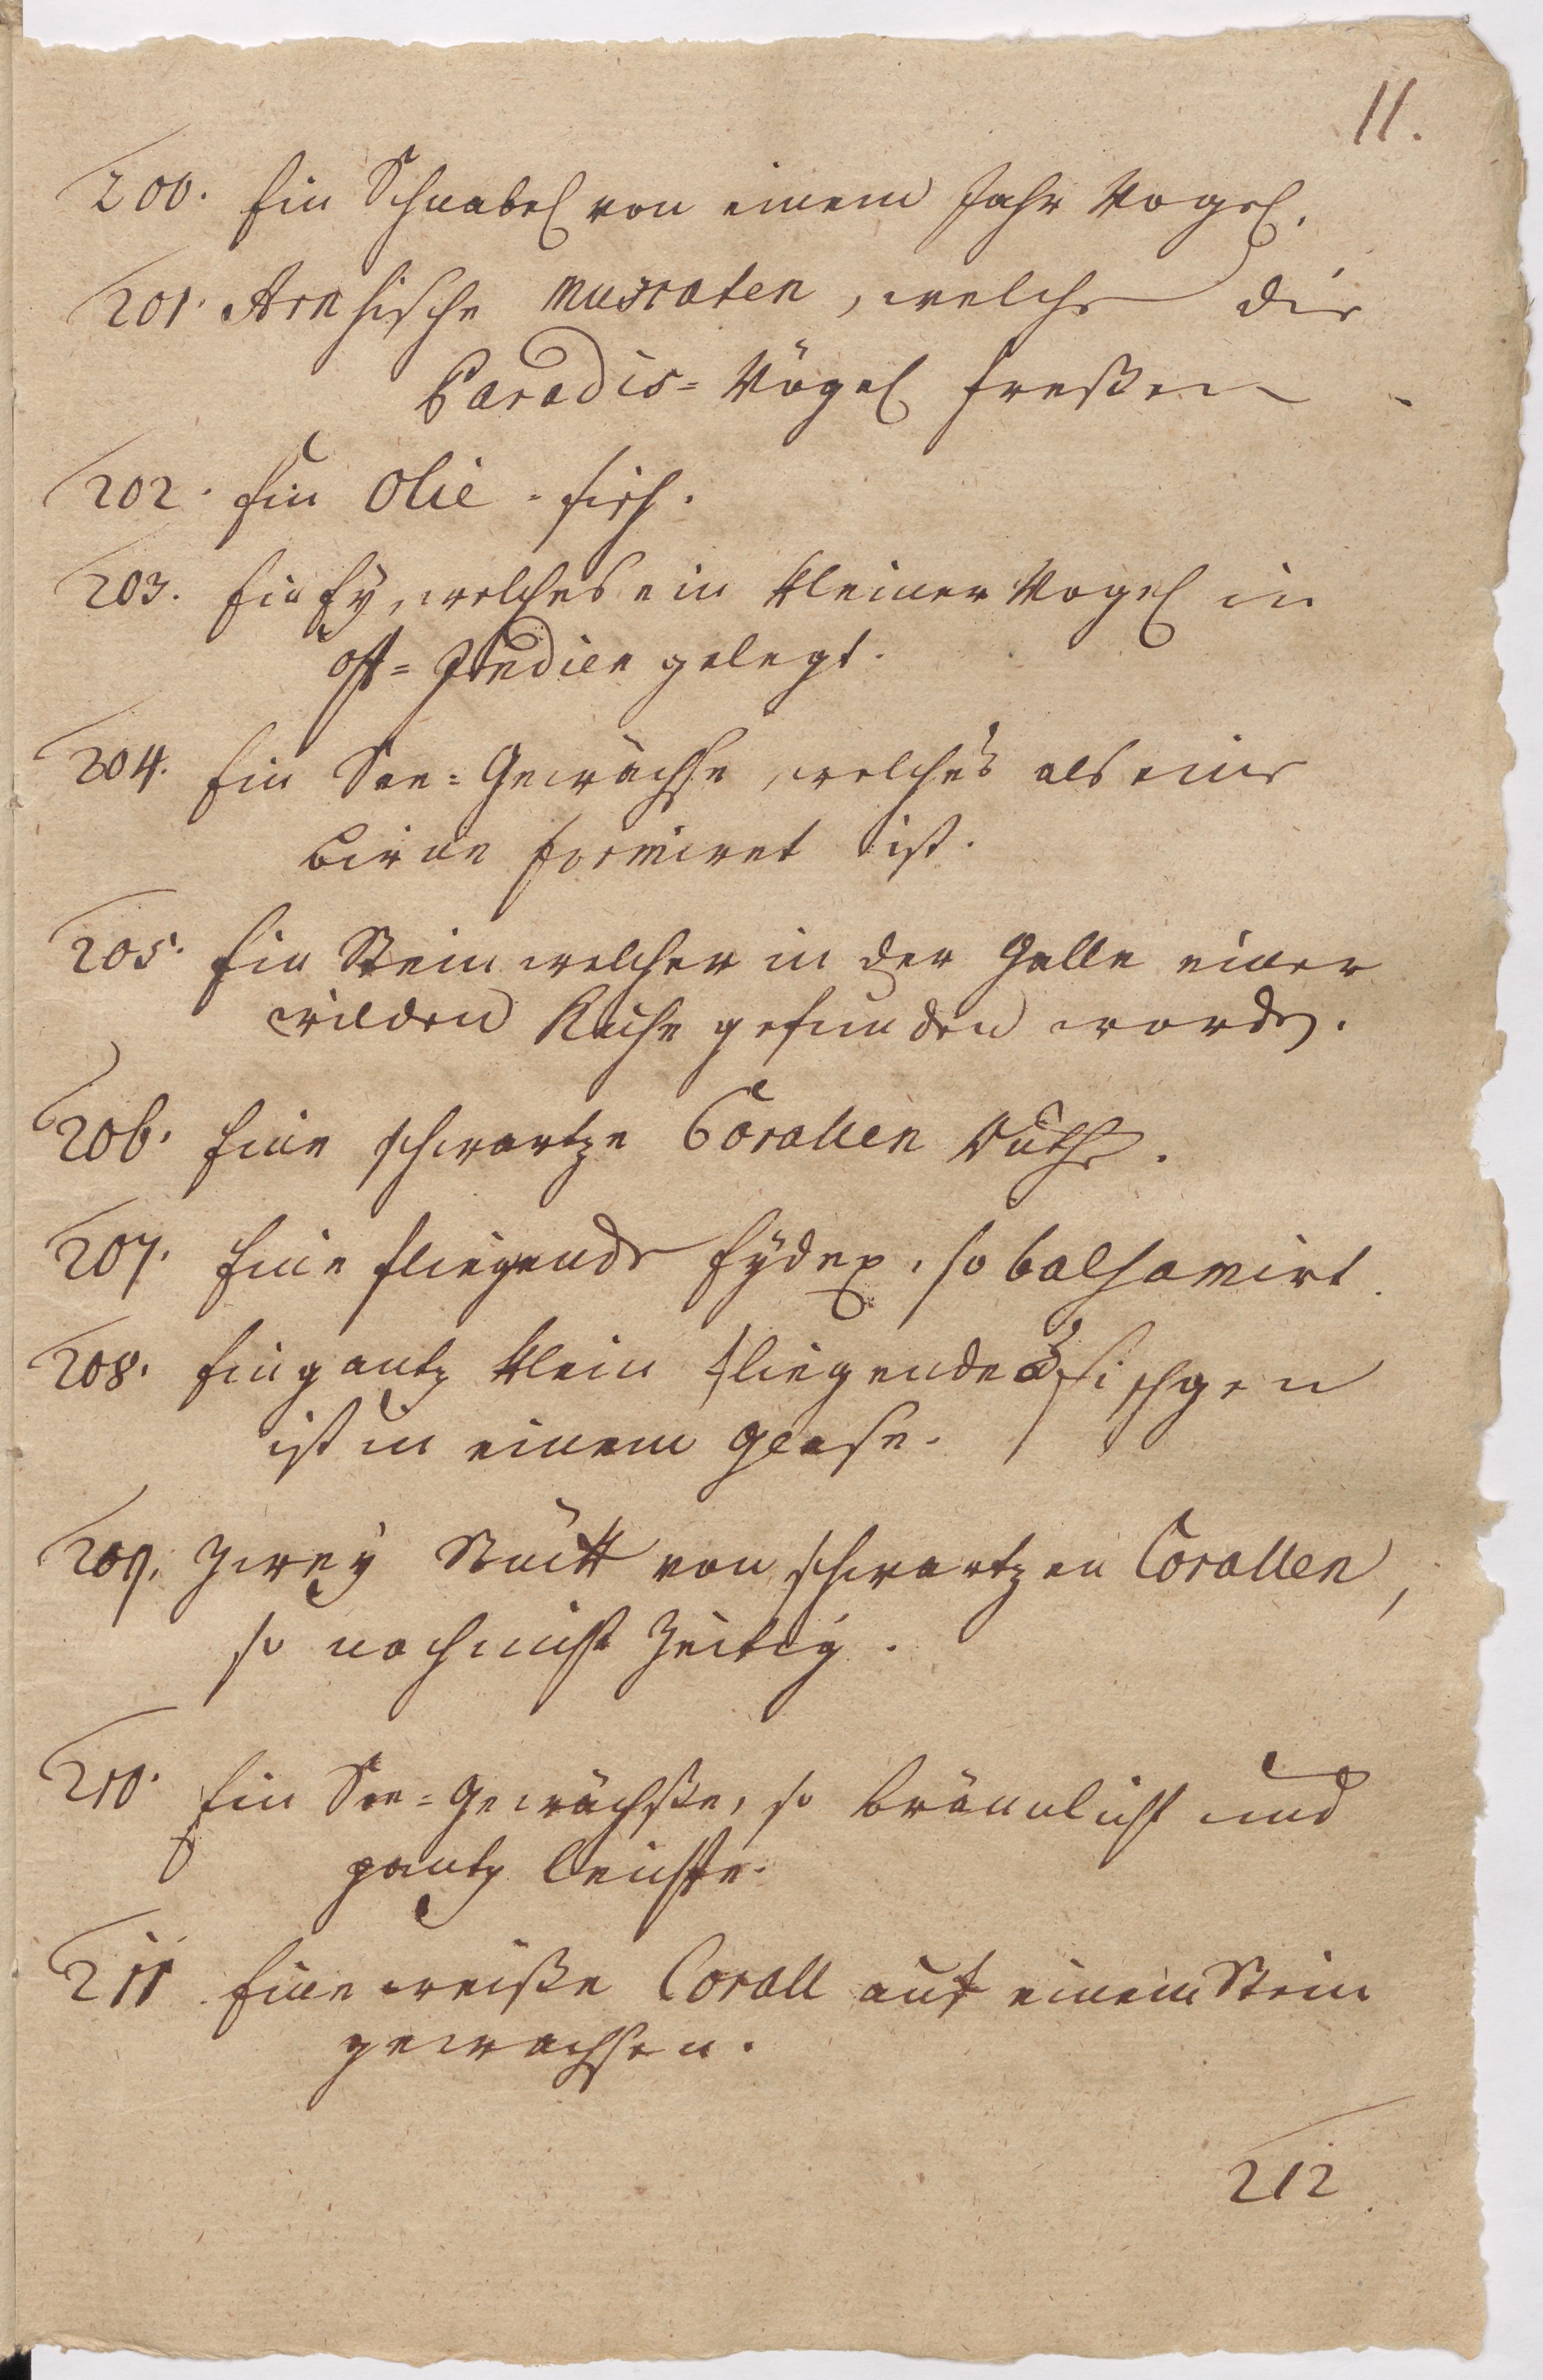 11.
200. Ein Schnabel von einem Jahr Vogel.
201. Arnsische Muscaten, welche die
Paradis=Vögel freßen
202. Ein Olie-fisch.
203. Ein Ey, welches ein kleiner Vogel in
Ost=Indien gelegt.
204. Ein See=Gewächse, welches als eine
Birne formiret ist.
205. Ein Stein welcher in der Galle einer
wilden Kuhe gefunden worden.
206. Eine schwartze Corallen Ruthe.
207. Eine fliegende Eydex, so balsamirt
208. Ein gantz klein fliegendes fischgen
ist in einem Glase.
209. Zwey Stück von schwartzen Corallen,
so noch nicht Zeitig.
210. Ein See=Gewächße, so bräunlicht und
gantz leichte.
211. Eine weiße Corall auf einem Stein
gewachsen.
212